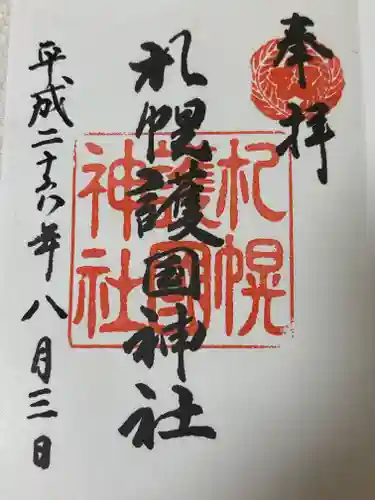 奉拝
札幌護国神社
札幌
護国
神社
平成二十六年八月三日